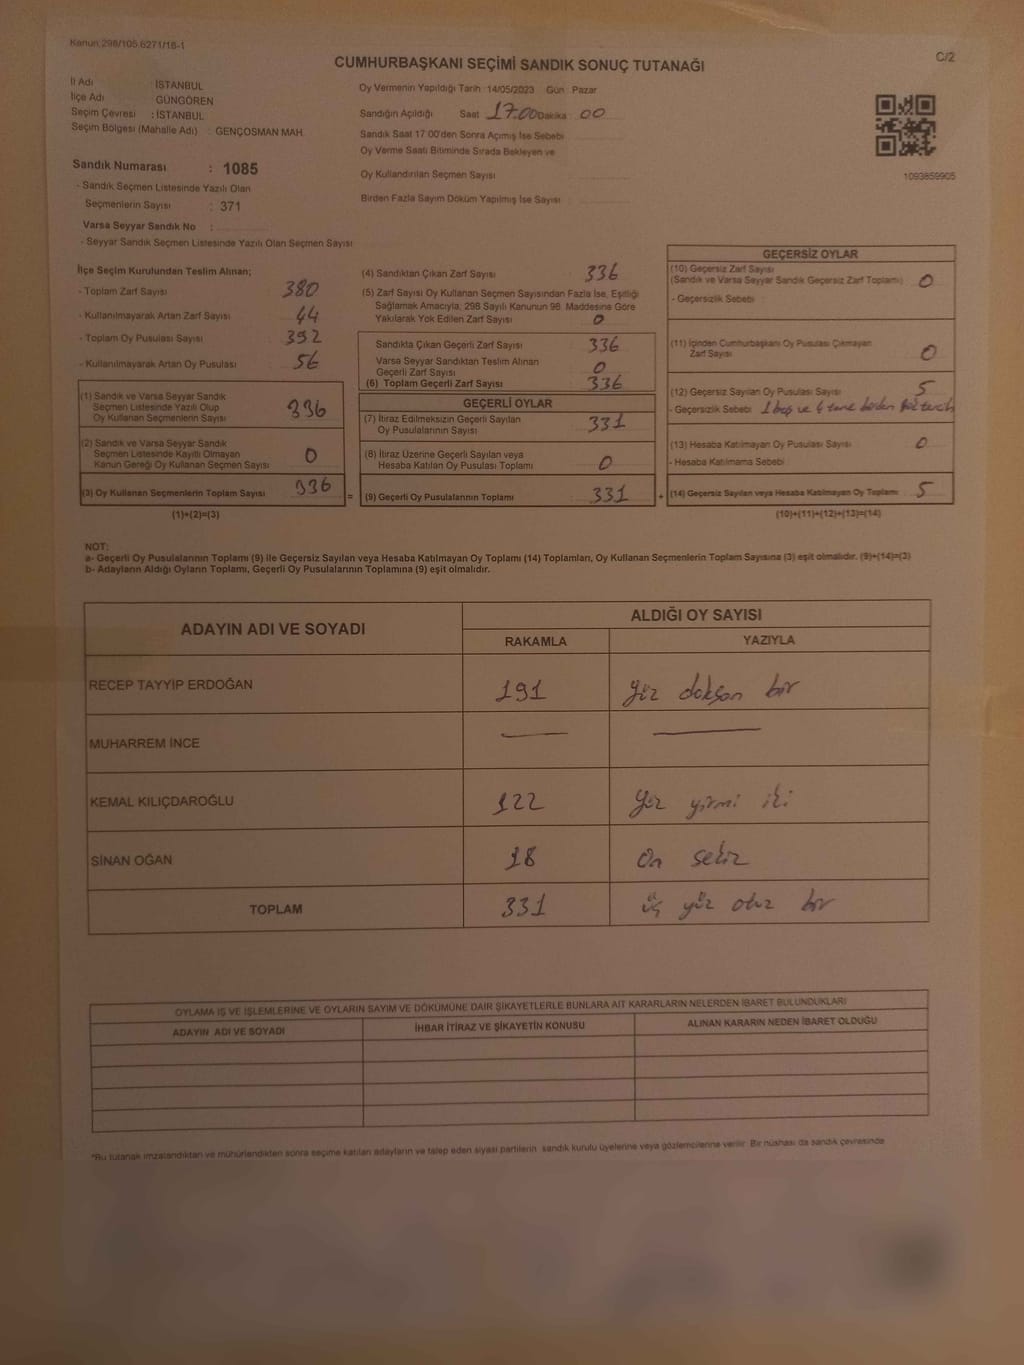 Kanun 298/105.6271/16-1
C/2
CUMHURBAŞKANI SEÇİMİ SANDIK SONUÇ TUTANAĞI
İl Adı : İSTANBUL
İlçe Adı : GÜNGÖREN
Seçim Çevresi : İSTANBUL
Seçim Bölgesi (Mahalle Adı) : GENÇOSMAN MAH.
Sandık Numarası : 1085
- Sandık Seçmen Listesinde Yazılı Olan
Seçmenlerin Sayısı : 371
Varsa Seyyar Sandık No :
- Seyyar Sandık Seçmen Listesinde Yazılı Olan Seçmen Sayısı
Oy Vermenin Yapıldığı Tarih :14/05/2023 Gün : Pazar
Sandığın Açıldığı Saat 17.00 Dakika : 00
Sandık Saat 17.00'den Sonra Açımış İse Sebebi
Oy Verme Saati Bitiminde Sırada Bekleyen ve
Oy Kullandırılan Seçmen Sayısı
Birden Fazla Sayım Döküm Yapılmış İse Sayısı
1093859905
İlçe Seçim Kurulundan Teslim Alınan;
- Toplam Zarf Sayısı 380
- Kullanılmayarak Artan Zarf Sayısı 44
- Toplam Oy Pusulası Sayısı 392
- Kullanılmayarak Artan Oy Pusulası 56
(1) Sandık ve Varsa Seyyar Sandık
Seçmen Listesinde Yazılı Olup
Oy Kullanan Seçmenlerin Sayısı 336
(2) Sandık ve Varsa Seyyar Sandık
Seçmen Listesinde Kayıtlı Olmayan
Kanun Gereği Oy Kullanan Seçmen Sayısı 0
(3) Oy Kullanan Seçmenlerin Toplam Sayısı 336 =
(1)+(2)=(3)
(4) Sandıktan Çıkan Zarf Sayısı 336
(5) Zarf Sayısı Oy Kullanan Seçmen Sayısından Fazla İse, Eşitliği
Sağlamak Amacıyla, 298 Sayılı Kanunun 98. Maddesine Göre
Yakılarak Yok Edilen Zarf Sayısı 0
Sandıkta Çıkan Geçerli Zarf Sayısı 336
Varsa Seyyar Sandıktan Teslim Alınan
Geçerli Zarf Sayısı 0
(6) Toplam Geçerli Zarf Sayısı 336
GEÇERLİ OYLAR
(7) İtiraz Edilmeksizin Geçerli Sayılan
Oy Pusulalarının Sayısı 331
(8) İtiraz Üzerine Geçerli Sayılan veya
Hesaba Katılan Oy Pusulası Toplamı 0
(9) Geçerli Oy Pusulalarının Toplamı 331 +
GEÇERSİZ OYLAR
(10) Geçersiz Zarf Sayısı
(Sandık ve Varsa Seyyar Sandık Geçersiz Zarf Toplamı) 0
- Geçersizlik Sebebi :
(11) İçinden Cumhurbaşkanı Oy Pusulası Çıkmayan
Zarf Sayısı 0
(12) Geçersiz Sayılan Oy Pusulası Sayısı 5
- Geçersizlik Sebebi 1 boş ve 4 tane birden fazla tercih
(13) Hesaba Katılmayan Oy Pusulası Sayısı 0
- Hesaba Katılmama Sebebi
(14) Geçersiz Sayılan veya Hesaba Katılmayan Oy Toplamı 5
(10)+(11)+(12)+(13)=(14)
NOT:
a- Geçerli Oy Pusulalarının Toplamı (9) ile Geçersiz Sayılan veya Hesaba Katılmayan Oy Toplamı (14) Toplamları, Oy Kullanan Seçmenlerin Toplam Sayısına (3) eşit olmalıdır. (9)+(14)=(3)
b- Adayların Aldığı Oyların Toplamı, Geçerli Oy Pusulalarının Toplamına (9) eşit olmalıdır.
ADAYIN ADI VE SOYADI ALDIĞI OY SAYISI
RAKAMLA YAZIYLA
RECEP TAYYİP ERDOĞAN 191 yüz doksan bir
MUHARREM İNCE — —
KEMAL KILIÇDAROĞLU 122 yüz yirmi iki
SİNAN OĞAN 18 on sekiz
TOPLAM 331 üç yüz otuz bir
OYLAMA İŞ VE İŞLEMLERİNE VE OYLARIN SAYIM VE DÖKÜMÜNE DAİR ŞİKAYETLERLE BUNLARA AİT KARARLARIN NELERDEN İBARET BULUNDUKLARI
ADAYIN ADI VE SOYADI İHBAR İTİRAZ VE ŞİKAYETİN KONUSU ALINAN KARARIN NEDEN İBARET OLDUĞU
*Bu tutanak imzalandıktan ve mühürlendikten sonra seçime katılan adayların ve talep eden siyasi partilerin sandık kurulu üyelerine veya gözlemcilerine verilir. Bir nüshası da sandık çevresinde